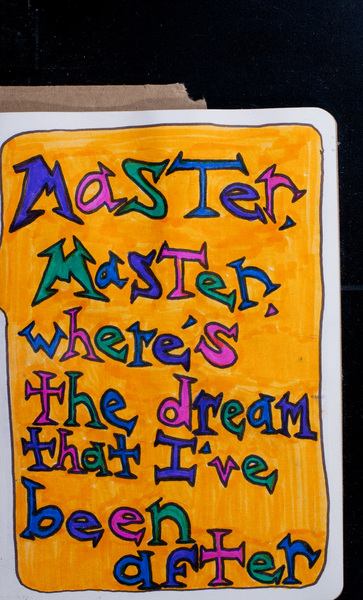 Master,
Master,
where's
the dream
that I've
been
after